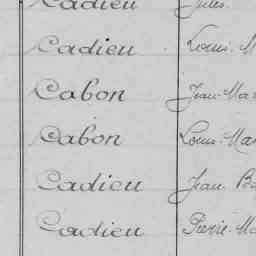 Cadieu Jules
Cadieu Louis
Cabon Jean
Cabon Louis
Cadieu Jean
Cadieu Pierre